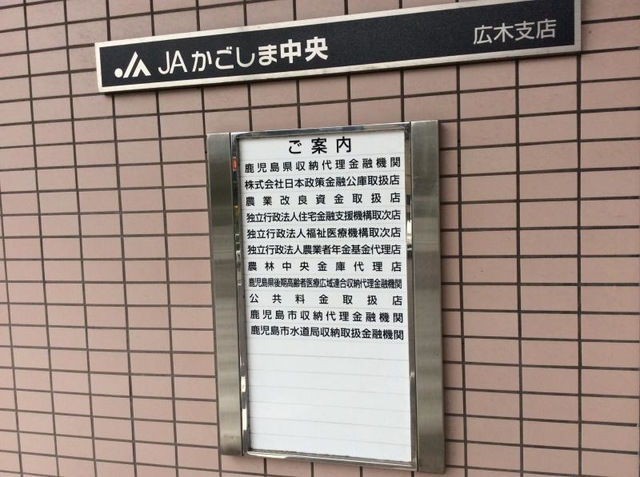 JAかごしま中央 広木支店
ご案内
鹿児島県収納代理金融機関
株式会社日本政策金融公庫取扱店
農業改良資金取扱店
独立行政法人住宅金融支援機構取次店
独立行政法人福祉医療機構取次店
独立行政法人農業者年金基金代理店
農林中央金庫代理店
鹿児島県後期高齢者医療広域連合収納代理金融機関
公共料金取扱店
鹿児島市収納代理金融機関
鹿児島市水道局収納取扱金融機関